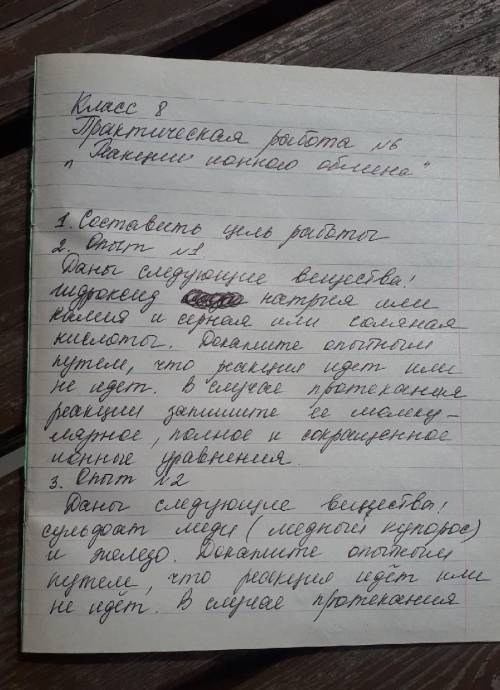 Класс 8
Практическая работа №6
"Реакции ионного обмена"
1. Составить цель работы
2. Опыт №1
Даны следующие вещества:
гидроксид натрия или
калия и серная или соляная
кислоты. Докажите опытным
путем, что реакция идет или
не идет. В случае протекания
реакции запишите ее молеку-
лярное, полное и сокращенное
ионные уравнения.
3. Опыт №2
Даны следующие вещества:
сульфат меди (медный купорос)
и железо. Докажите опытным
путем, что реакция идёт или
не идёт. В случае протекания